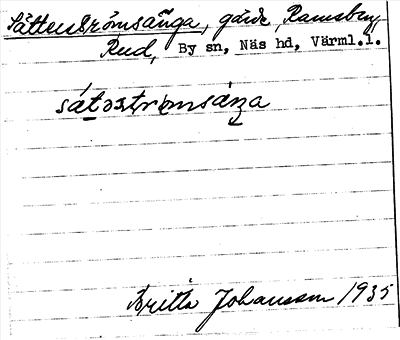 Såttenströmsänga, gärde, Ramsberg,
Rud, By sn, Näs hd, Värml.l.
såtɘströmsäŋa
Britta Johansson 1935